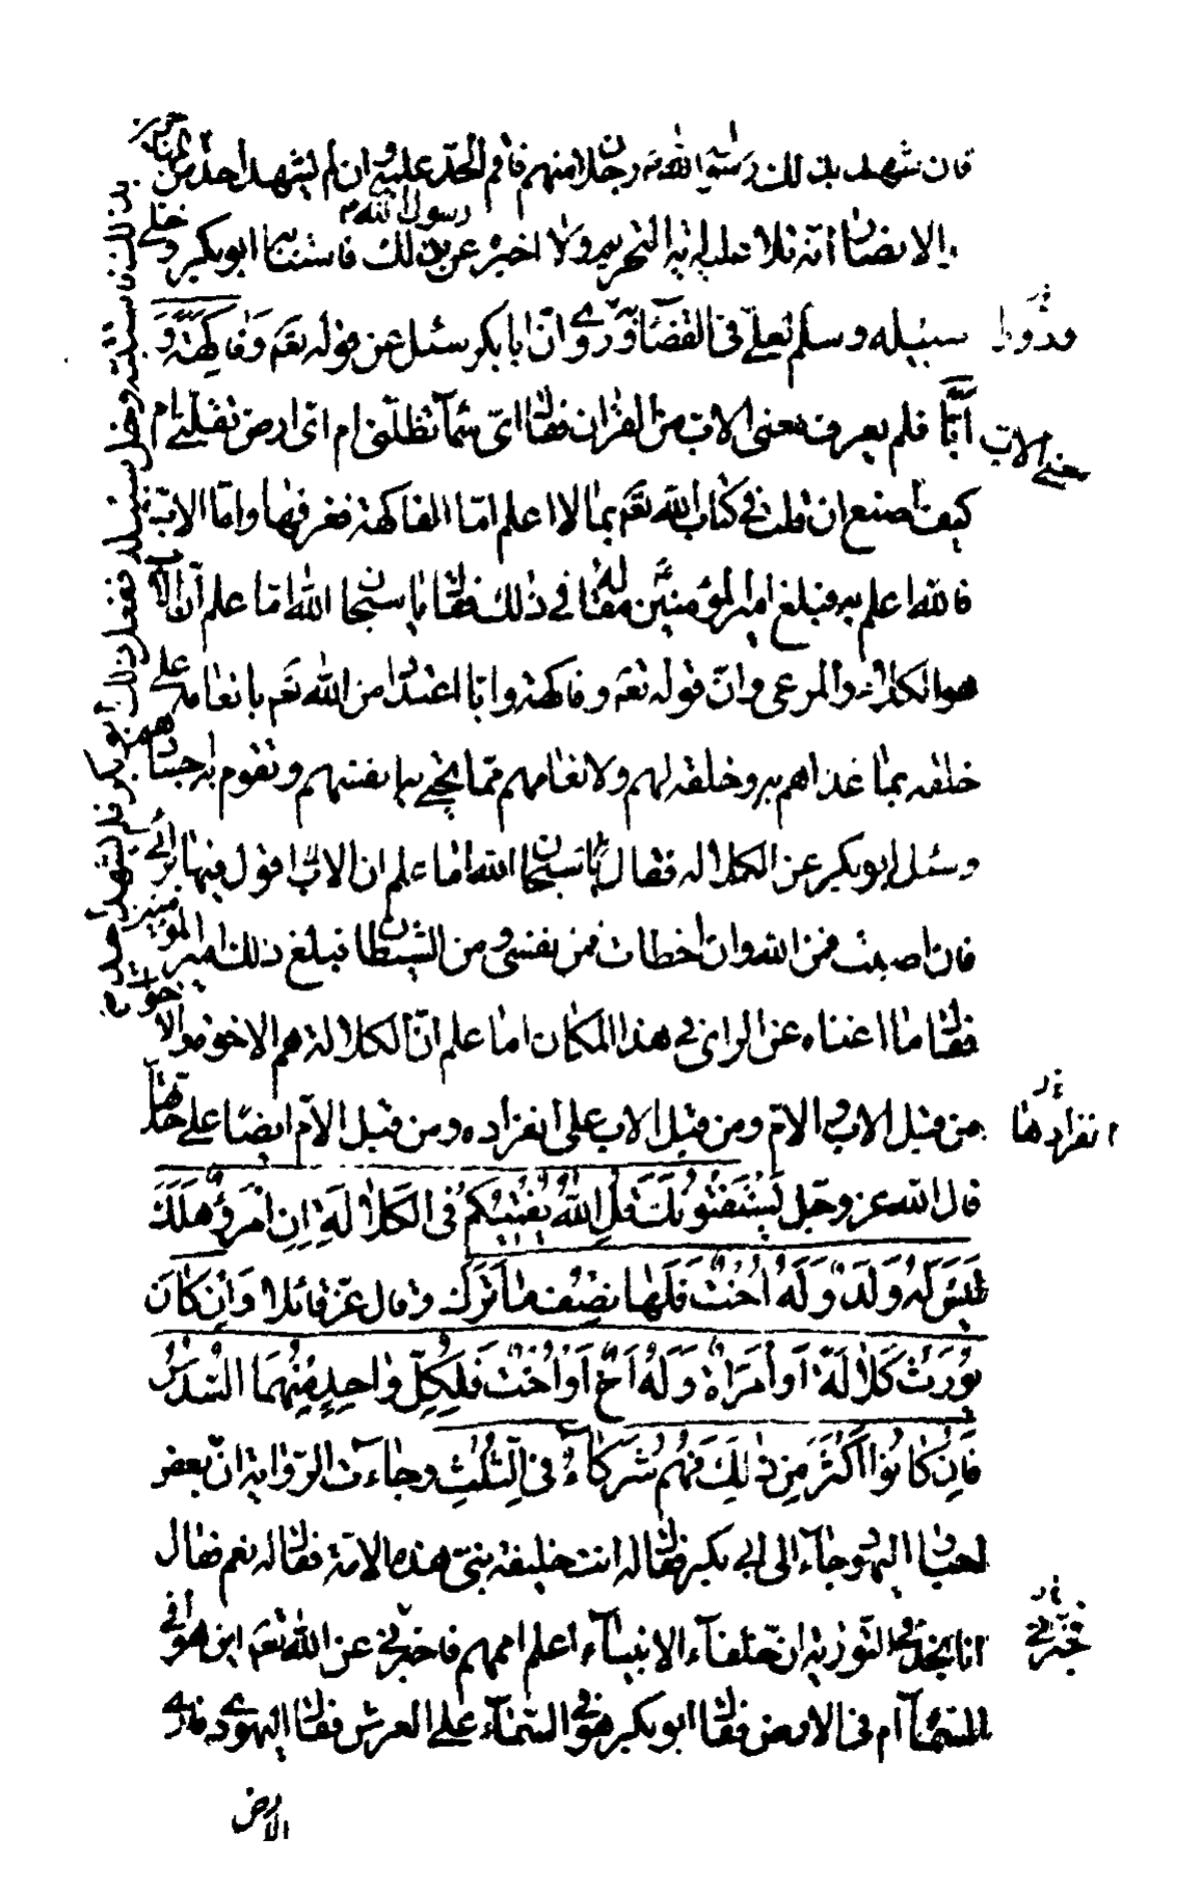 فان شهد بذلك رجلان منهم فاقم الحد عليه وان لم يشهد احد من المهاجرين
والانصار انه تلا عليه اية التحريم ولا اخبره عن رسول الله بذلك فاستتبه وخل
سبيله وسلم لعلي في القضاء وروى ان ابا بكر سئل عن قوله تعم وَفاكِهَةً وَ
اَبًّا فلم يعرف معنى الاب من القران فقال اىّ سمآء تظلّنى ام اىّ ارض تقلّنى ام
كيف اصنع ان قلت فى كتاب الله تعم بما لا اعلم امّا الفاكهة فنعرفها وامّا الابّ
فالله اعلم به فبلغ امير المؤمنين مقاله فى ذلك فقال يا سبحان الله اما علم انّ الابّ
هو الكلاء والمرعى وانّ قوله تعم وفاكهة وابّا اعتداد من الله تعم بانعامه على
خلقه بما غذاهم به وخلقه لهم ولانعامهم ممّا تحيى به انفسهم وتقوم به اجسادهم
وسئل ابو بكر عن الكلالة فقال اقول فيها برأيى
فان اصبت فمن الله وان اخطات فمن نفسى ومن الشيطان فبلغ ذلك امير المؤمنين
فقال ما اغناه عن الراى فى هذا المكان اما علم انّ الكلالة هم الاخوة والاخوات
من قبل الاب والامّ ومن قبل الاب على انفراده ومن قبل الامّ ايضا على حدّتها
قال الله عز وجل يَسْتَفْتُونَكَ قُلِ اللهُ يُفْتِيكُمْ فِى الْكَلالَةِ اِنِ امْرُؤٌ هَلَكَ
لَيْسَ لَهُ وَلَدٌ وَلَهُ اُخْتٌ فَلَها نِصْفُ ما تَرَكَ وقال عزّ قائلا وَاِنْ كانَ
يُورَثُ كَلالَةً اَوِ امْرَاَةٌ وَلَهُ اَخٌ اَوْ اُخْتٌ فَلِكُلِّ واحِدٍ مِنْهُمَا السُّدُسُ
فَاِنْ كانُوا اَكْثَرَ مِنْ ذلِكَ فَهُمْ شُرَكآءُ فِى الثُّلُثِ وجاءت الرّواية انّ بعض
احبار اليهود جآء الى ابى بكر فقال له انت خليفة نبىّ هذه الامّة فقال له نعم فقال
انا نجد فى التورية ان خلفآء الانبيآء اعلم اممهم فاخبرنى عن الله تعم اين هو افى
السمآء ام فى الارض فقال ابو بكر هو فى السمآء على العرش فقال اليهودى فارى
الارض
وذروا
معنى الاب
انفرادها
فخبرنى
بذلك فاستتبه وخل سبيله ففعل ذلك ابو بكر فلم يشهد احد